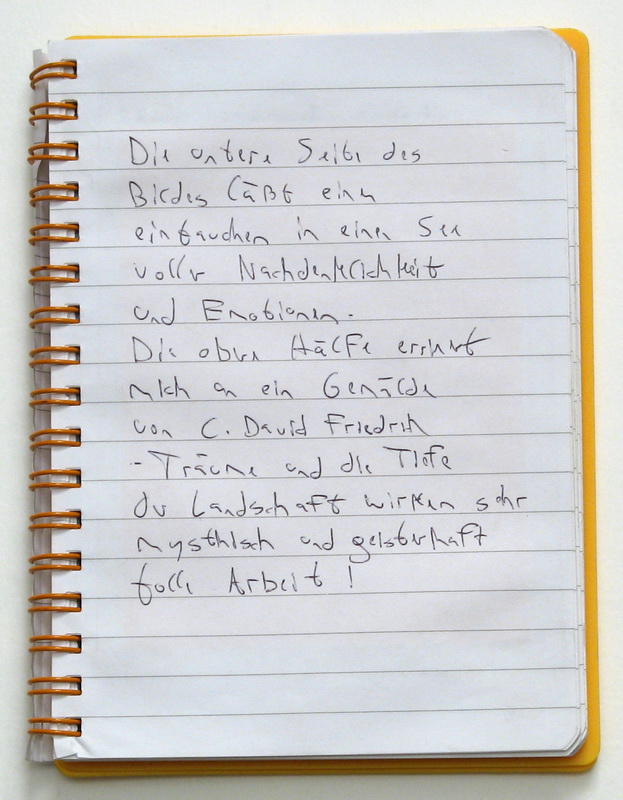 Die untere Seite des
Bildes läßt einen
eintauchen in einen See
voller Nachdenklichkeit
und Emotionen.
Die obere Hälfe erinnert
mich an ein Gemälde
von C. David Friedrich
- Träume und die Tiefe
der Landschaft wirken sehr
mysthisch und geisterhaft
tolle Arbeit !